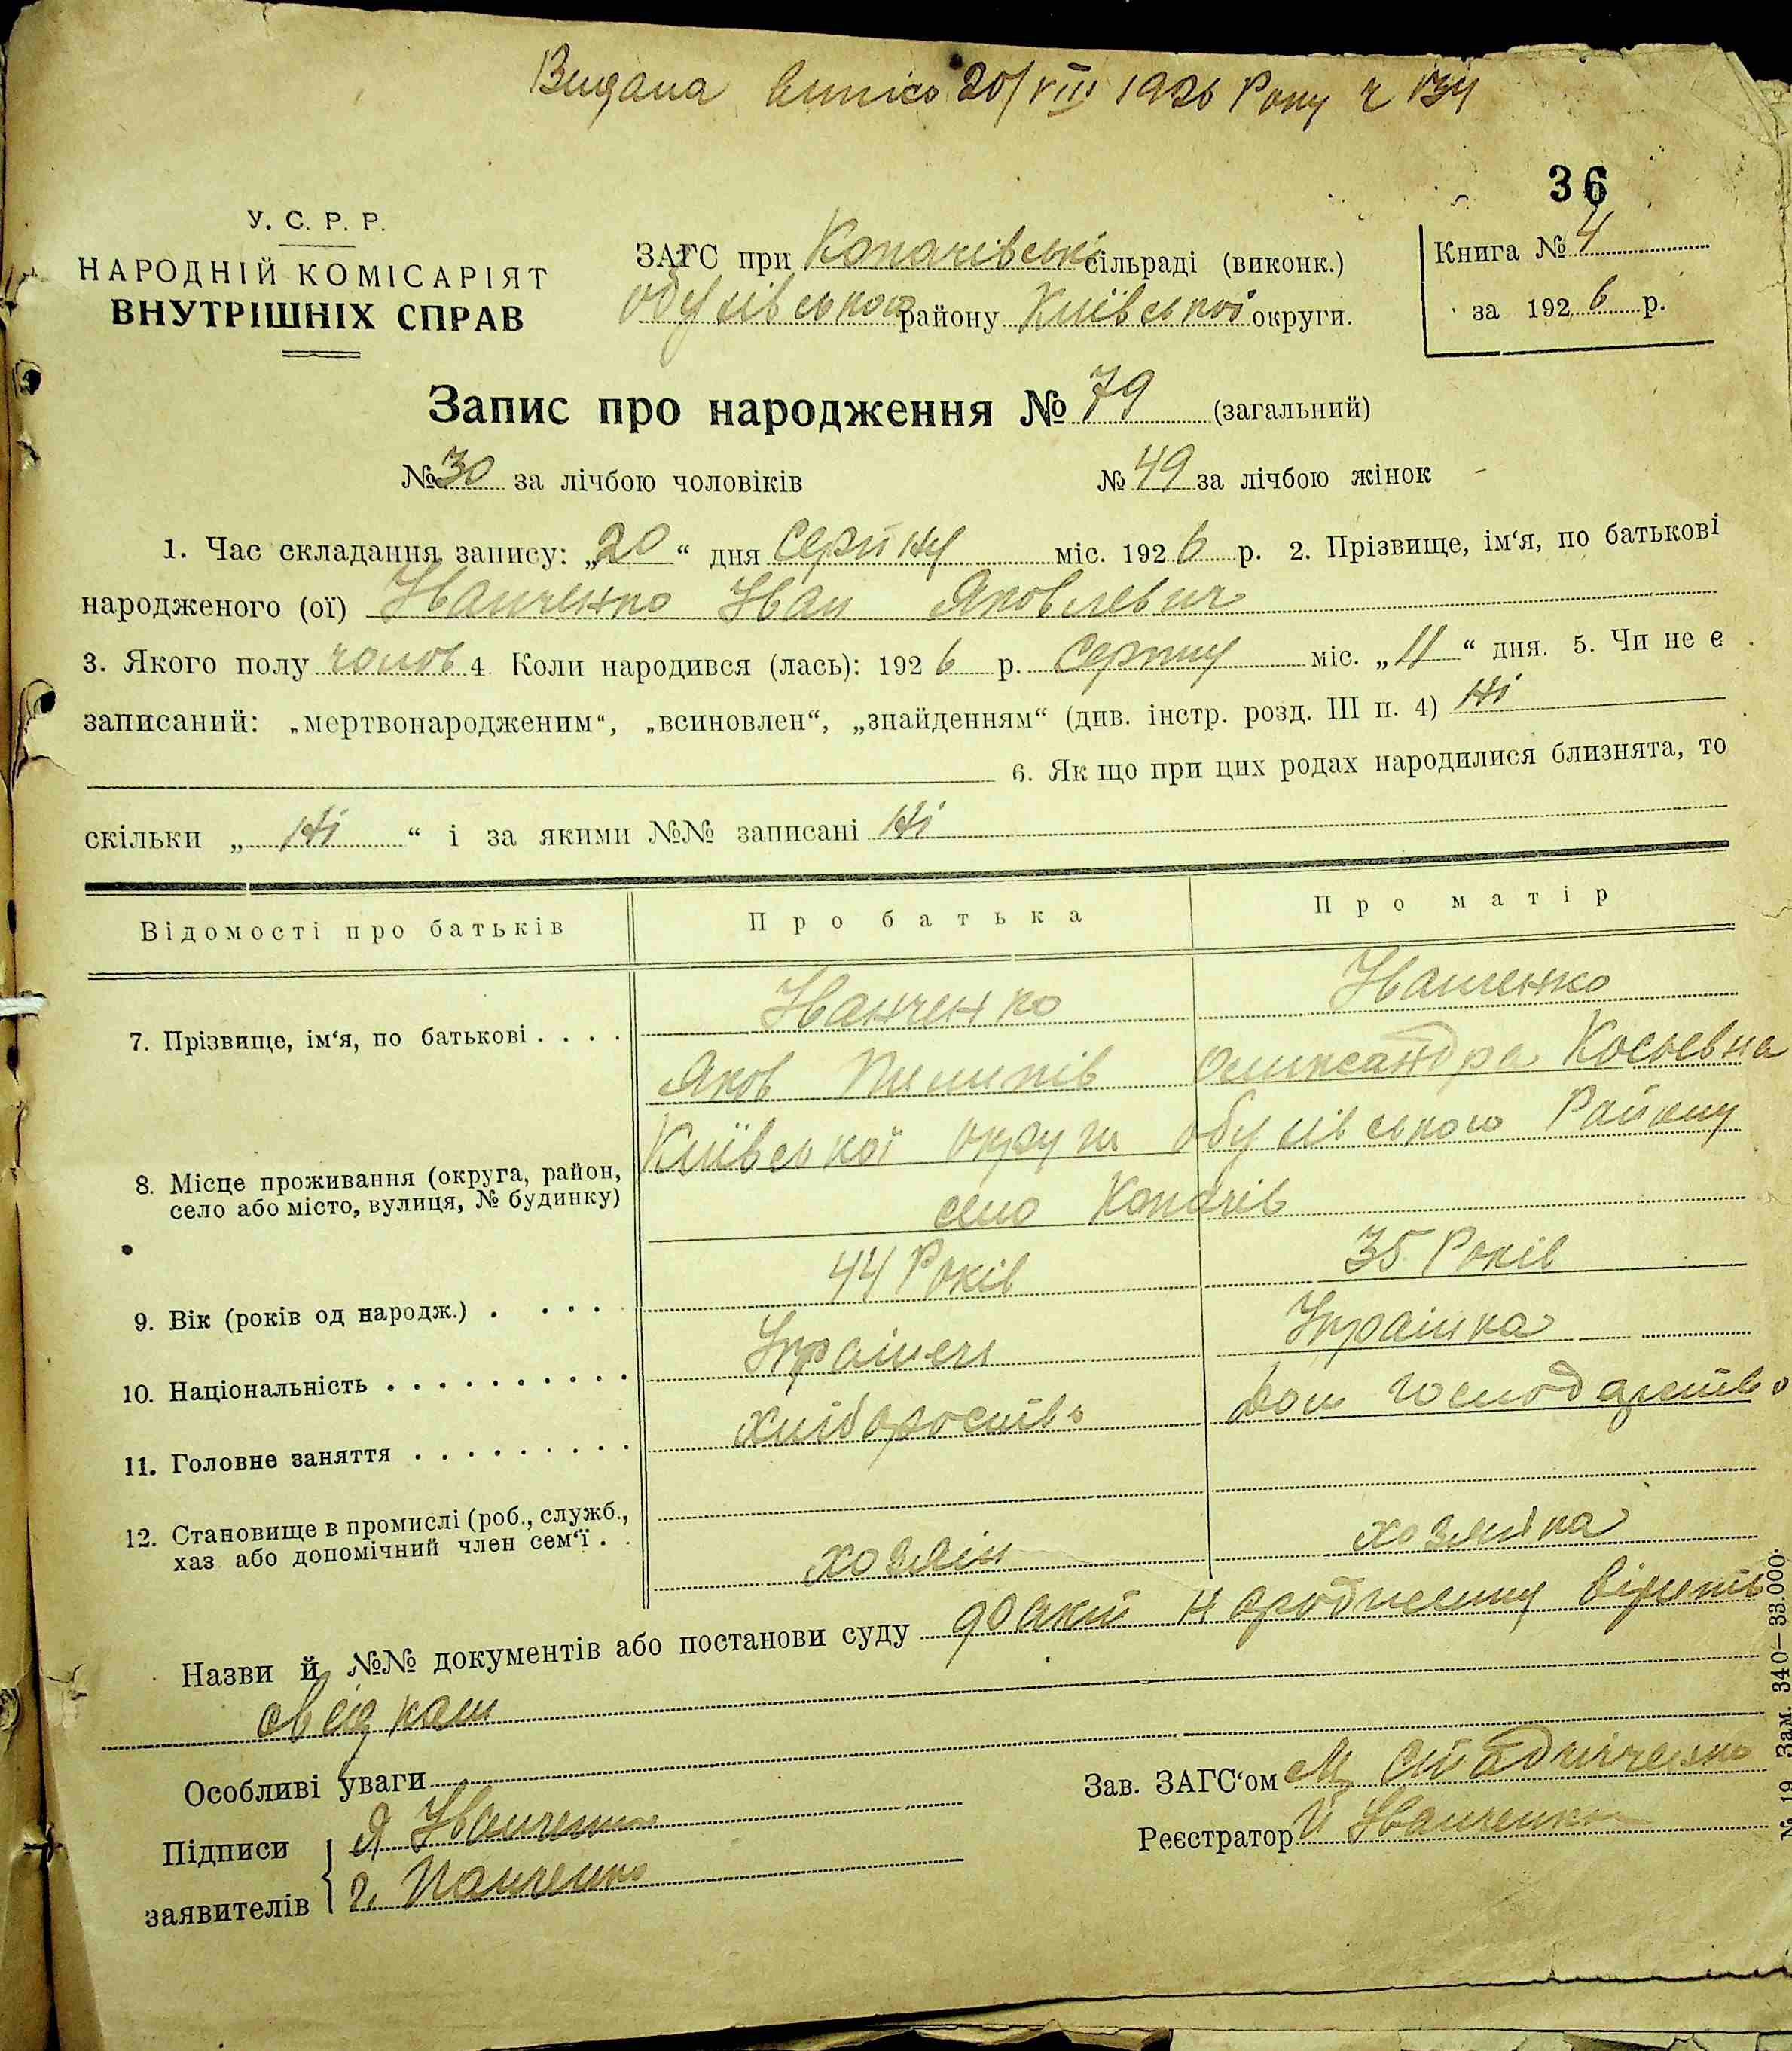 Видана випис 20/VIII 1926 Року ч 134
36
У. С. Р. Р.
НАРОДНІЙ КОМІСАРІЯТ
ВНУТРІШНІХ СПРАВ
ЗАГС при Копачівські сільраді (виконк.)
Обухівського району Київської округи.
Книга № 4
за 192 6 р.
Запис про народження № 79 (загальний)
№ 30 за лічбою чоловіків № 49 за лічбою жінок
1. Час складання запису: „20“ дня Серпня міс. 192 6 р. 2. Прізвище, ім‘я, по батькові
народженого (ої) Іванченко Іван Яковлевич
3. Якого полу чолов 4 Коли народився (лась): 192 6 р. Серпня міс. „11“ дня. 5. Чи не є
записаний: „мертвонародженим“, „всиновлен“, „знайденням“ (див. інстр. розд. III п. 4) Ні
6. Як що при цих родах народилися близнята, то
скільки „ Ні “ і за якими №№ записані Ні
Відомості про батьків Про батька Про матір
Іванченко Іванченко
7. Прізвище, ім‘я, по батькові . . . .
Яков Пилипів Олександра
Київської округи Обухівського Району
8. Місце проживання (округа, район,
село або місто, вулиця, № будинку)
село Копачів
44 Років 35 Років
9. Вік (років од народж.) . . . .
Українець Українка
10. Національність . . . . . . . . . .
хліборобство дом господарство
11. Головне заняття . . . . . . . . .
12. Становище в промислі (роб., служб.,
хаз або допомічний член сем‘ї . .
хозяїн хозяйка
Назви й №№ документів або постанови суду
Особливі уваги
Зав. ЗАГС‘ом М Стадніченко
Підписи Я Іванченко
Реєстратор Й Іванченко
заявителів
№ 19 Зам. 340—33.000.